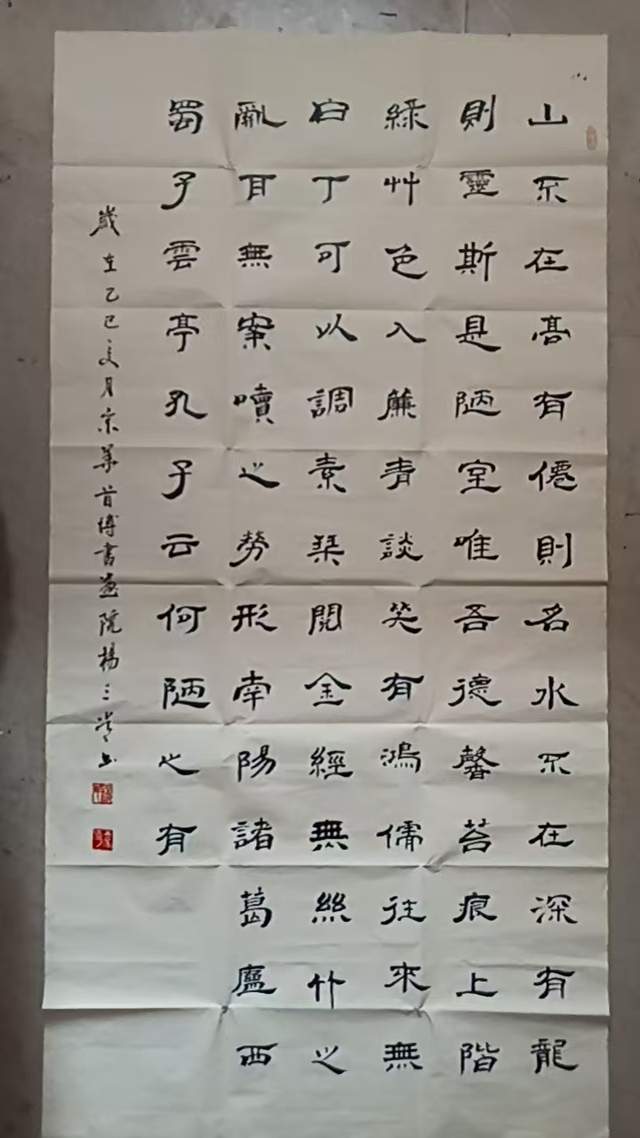 山不在高有僊則名水不在深有龍
則靈斯是陋室唯吾德馨苔痕上階
綠艸色入簾青談笑有鴻儒往來無
白丁可以調素琹閱金經無絲竹之
亂耳無案嘖之勞形南陽諸葛廬西
蜀子雲亭孔子云何陋之有
歲在乙巳夏月京華首博書畫院楊三